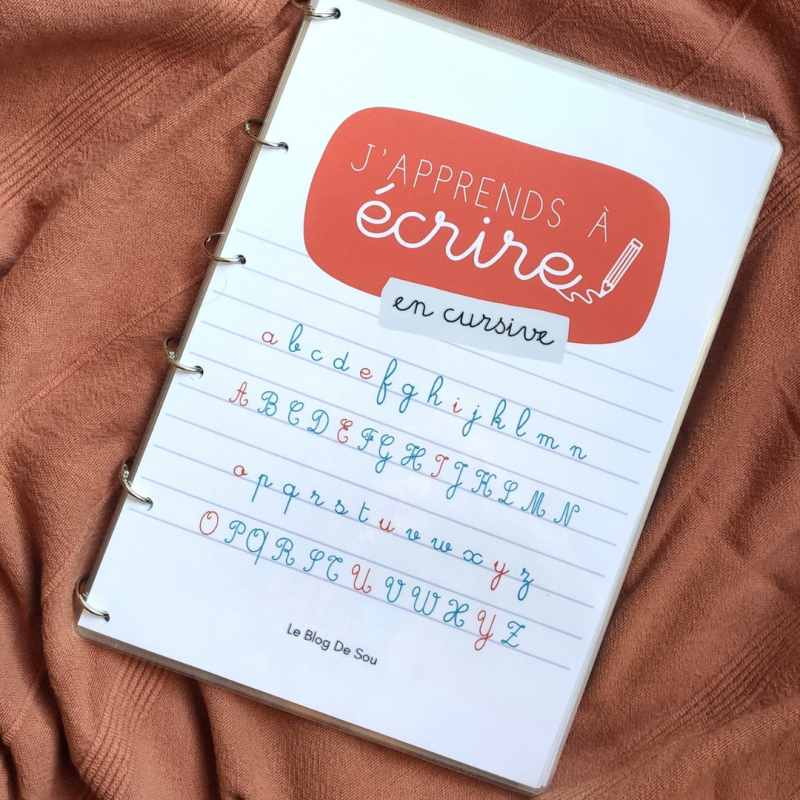 J'APPRENDS À
écrire
en cursive
a b c d e f g h i j k l m n
A B C D E F G H I J K L M N
o p q r s t u v w x y z
O P Q R S T U V W X Y Z
Le Blog De Sou